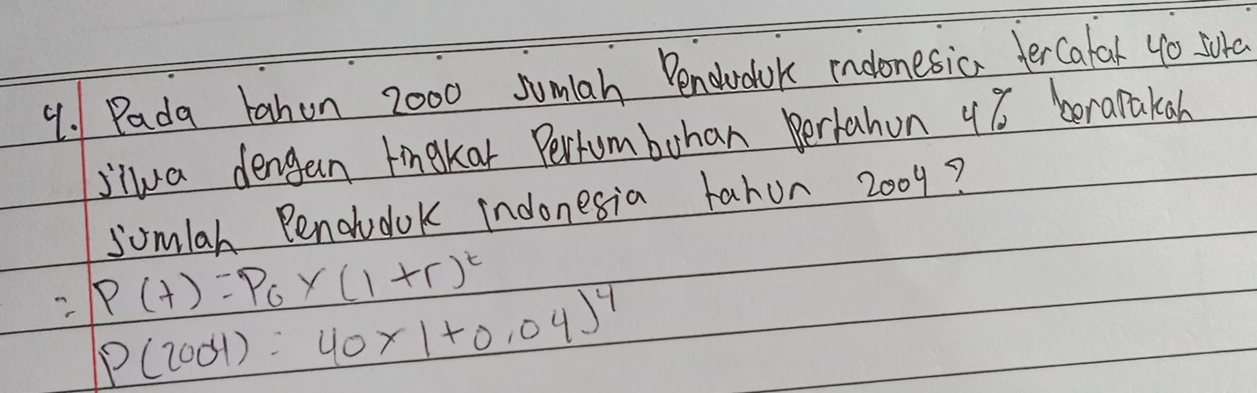 4. Pada tahun 2000 Jumlah Penduduk indonesia tercatat 40 juta
jiwa dengan tingkat Pertumbuhan Pertahun 4% berapakah
jumlah Penduduk indonesia tahun 2004?
= P(t) = P0 × (1+r)^t
P(2004) = 40 × 1+0,04)^4